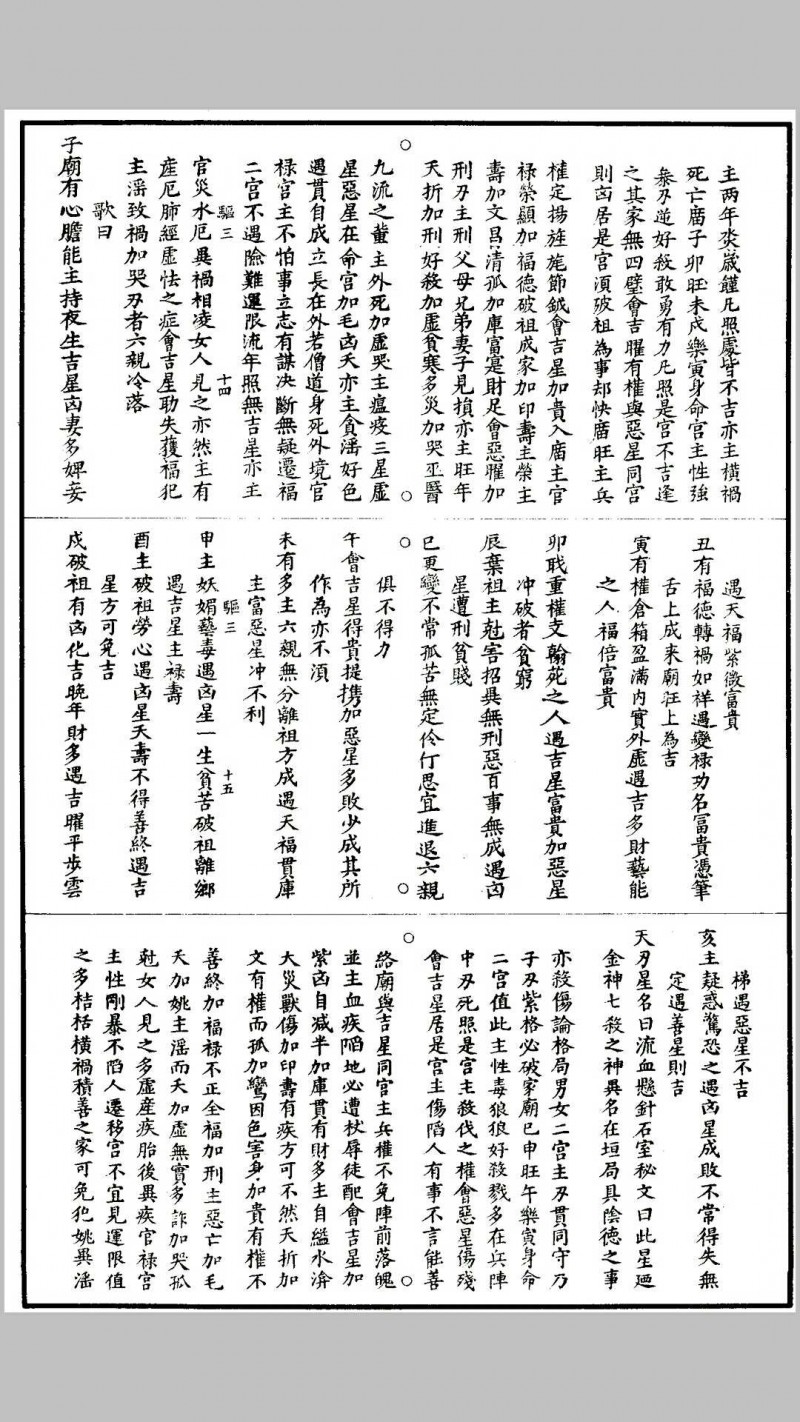 主两年災歲饉凡照處皆不吉亦主橫禍
死亡廟子卯旺未戌樂寅身命宮主性強
暴刃逆好殺敢勇有力凡照是宮不吉逢
之其家無四壁會吉曜有權與惡星同宮
則凶居是宮須破祖為事却快廟旺主兵
權定揚旌旄節鉞會吉星加貴入廟主官
祿榮顯加福德破祖成家加印壽主榮主
壽加文昌清孤加庫富寔財足會惡曜加
刑刃主刑父母兄弟妻子見損亦主旺年
夭折加刑好殺加虛貧寒多災加哭巫醫
九流之輩主外死加虛哭主瘟疫三星虛
星惡星在命宮加毛凶夭亦主貪滛好色
遇貫自成立長在外若僧道身死外境官
祿宮主不怕事立志有謀决斷無疑遷福
二宮不遇險難運限流年照無吉星亦主
驅三 十四
官災水厄異禍相凌女人見之亦然主有
產厄肺經虛怯之症會吉星助失獲福犯
主滛致禍加哭刃者六親冷落
歌曰
子廟有心膽能主持夜生吉星凶妻多婢妾
遇天福紫微富貴
丑有福德轉禍如祥遇變祿功名冨貴憑筆
舌上成来廟旺上為吉
寅有權倉箱盈滿内實外虛遇吉多財藝能
之人福倍富貴
卯職重權文翰苑之人遇吉星富貴加惡星
冲破者貧窮
辰棄祖主尅害招異無刑惡百事無成遇凶
星遭刑貧賤
巳更變不常孤苦無定伶仃思宜進退六親
俱不得力
午會吉星得貴提携加惡星多敗少成其所
作為亦不湏
未有多主六親無分離祖方成遇天福貫庫
主富惡星冲不利
驅三 十五
申主妖媚藝毒遇凶星一生貧苦破祖離鄉
遇吉星主祿壽
酉主破祖勞心遇凶星夭壽不得善終遇吉
星方可免吉
戌破祖有凶化吉晚年財多遇吉曜平步雲
梯遇惡星不吉
亥主疑惑驚恐之遇凶星成敗不常得失無
定遇善星則吉
天刃星名曰流血懸針石室秘文曰此星廼
金神七殺之神異名在垣局具陰德之事
亦殺傷論格局男女二宮主刃貫同守乃
子刃紫格必破家廟巳申旺午樂寅身命
二宮值此主性毒狼狼好殺戮多在兵陣
中刃死照是宮主殺伐之權會惡星傷殘
會吉星居是宮主傷陷人有事不言能善
絡廟與吉星同宮主兵權不免陣前落魄
並主血疾陷地必遭杖辱徒配會吉星加
紫凶自减半加庫貫有財多主自縊水渰
大災獸傷加印壽有疾方可不然夭折加
文有權而孤加鸞因色害身加貴有權不
善終加福祿不正全福加刑主惡亡加毛
夭加姚主滛而夭加虛無實多詐加哭孤
尅女人見之多虛産疾胎後異疾官祿宮
主性剛暴不陷人遷移宮不宜見運限值
之多桔栝橫禍積善之家可免犯姚異滛